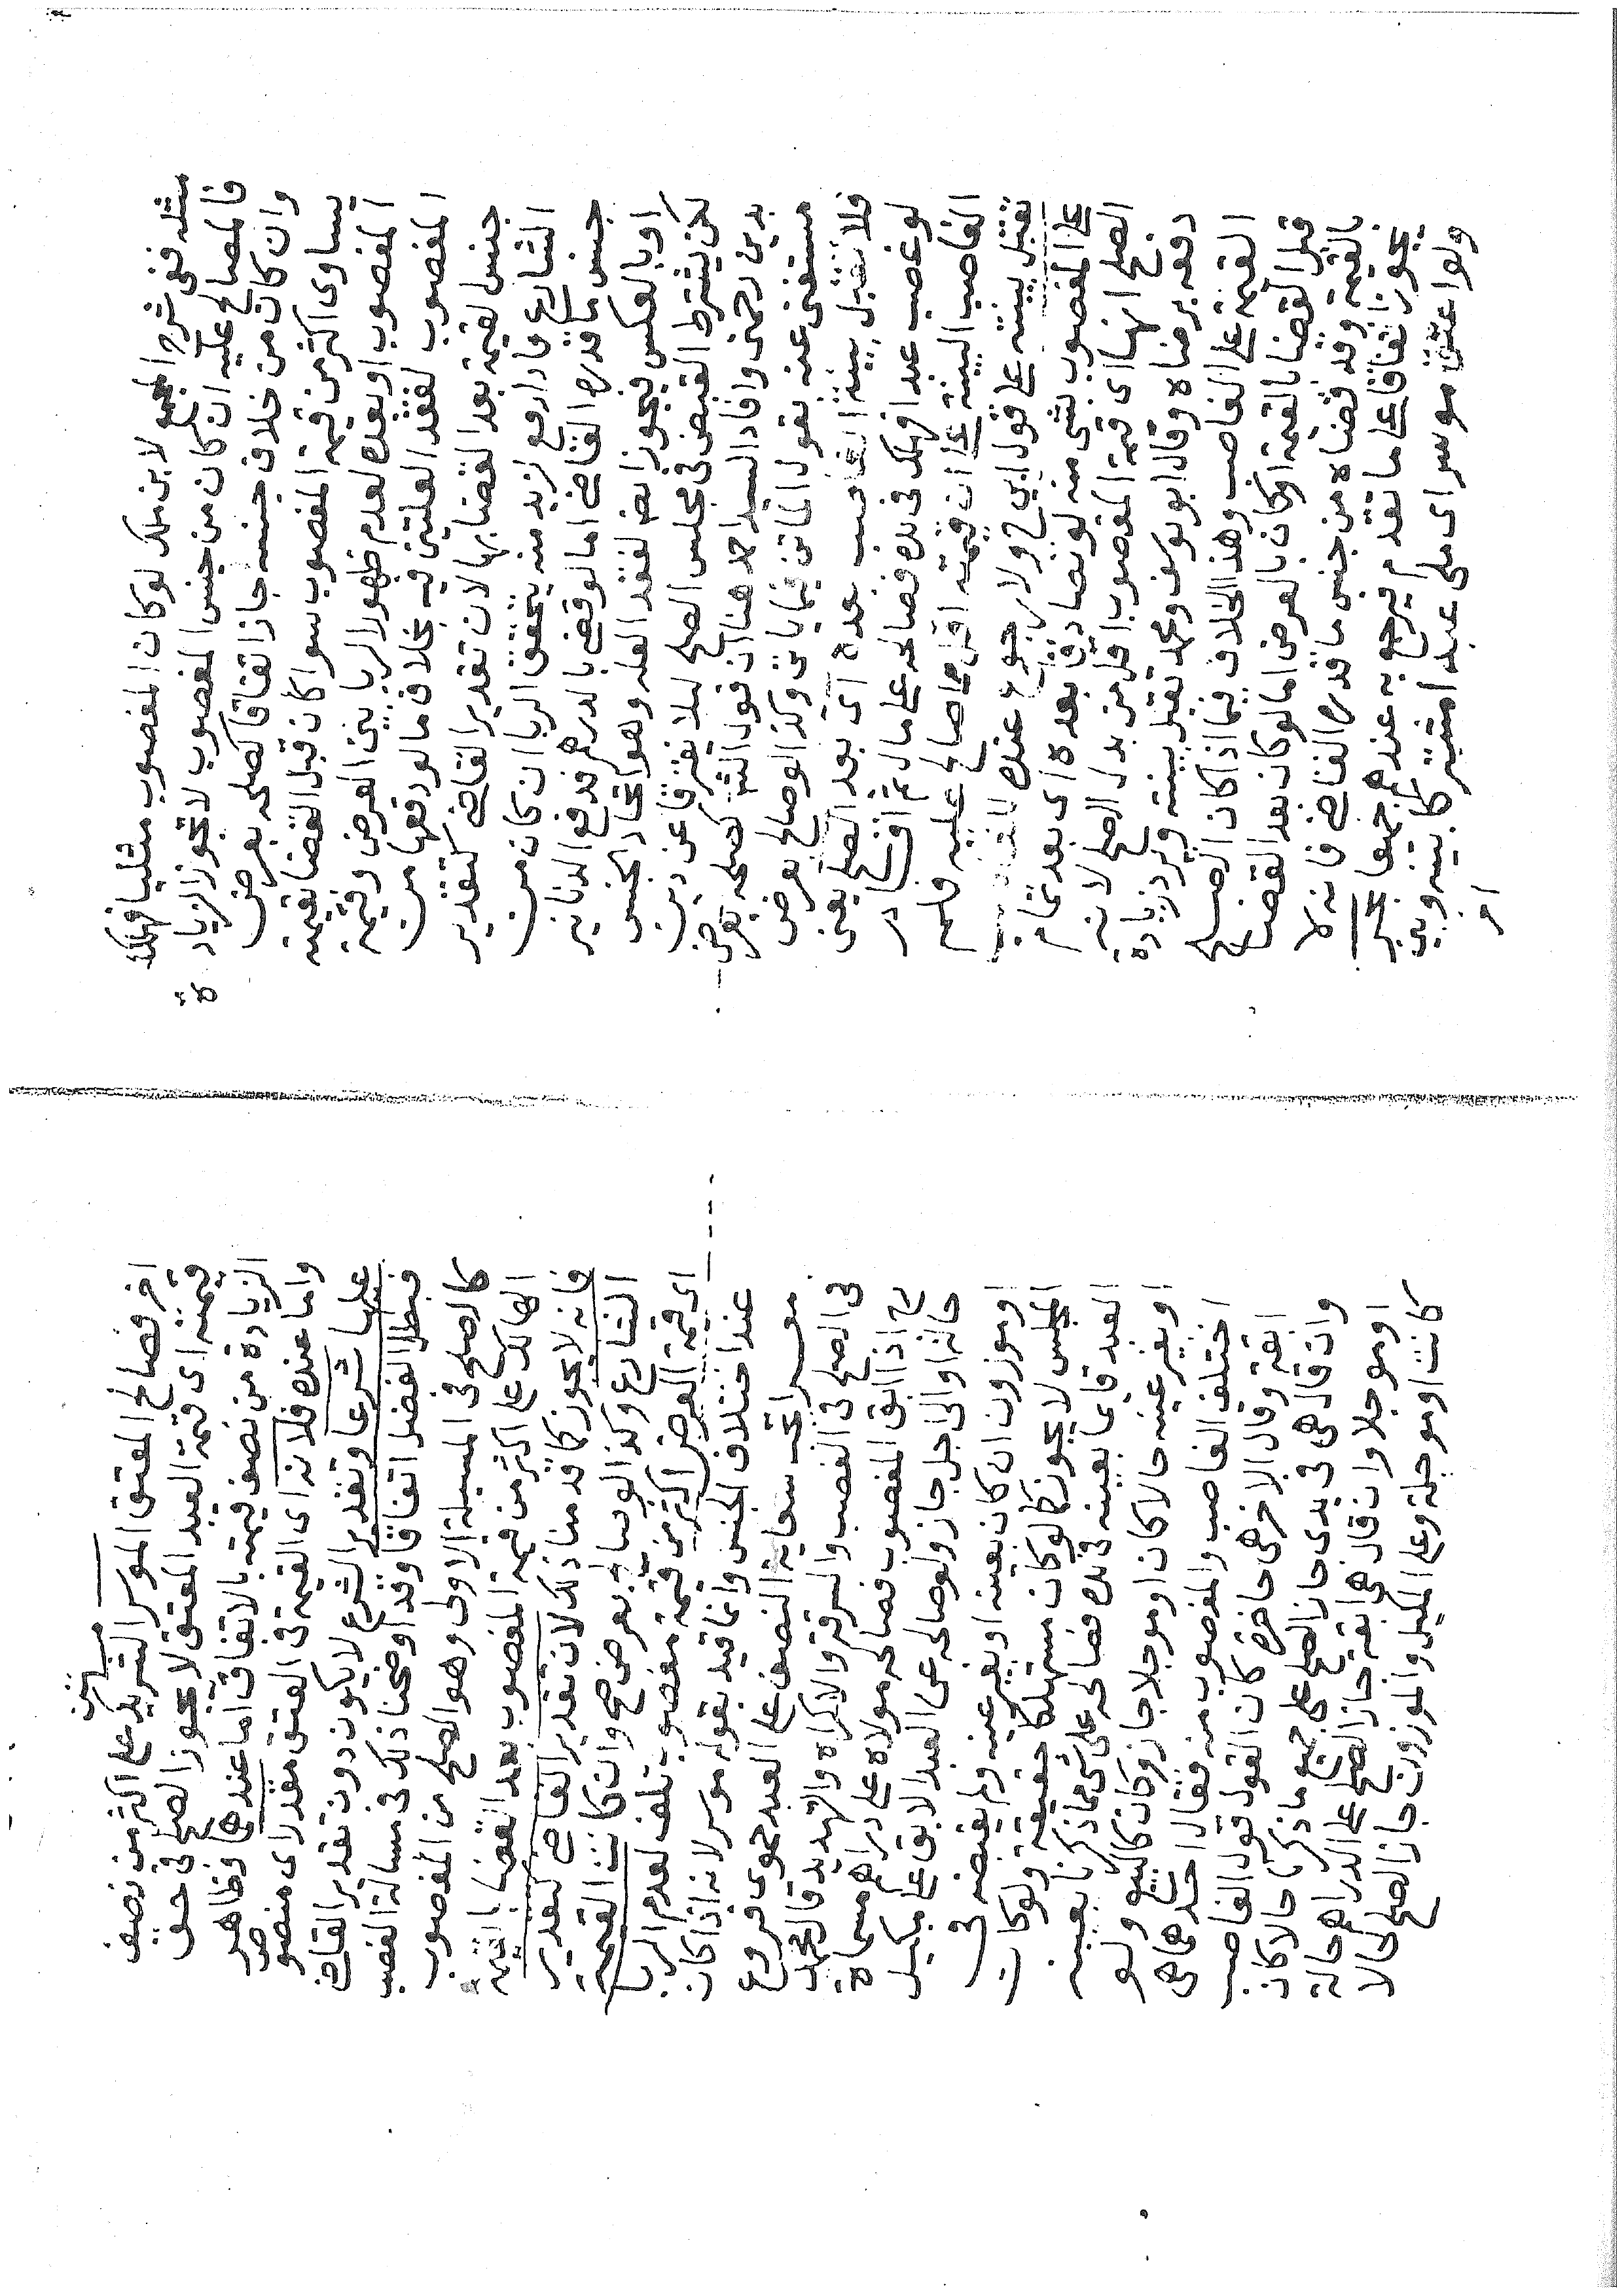 مثله ففى شرح المجمع لابن ملك لوكان المغصوب مثليا فهلك
فالمصالح عليه ان كان من جنس المغصوب لا تجوز الزيادة
وان كان من خلاف جنسه جاز اتفاقا كصلحه بعرض
يساوى اكثر من قيمة المغصوب سوا كان قبل القضا بقيمة
المغصوب او بعده لعدم ظهور الربا بين العرض وقيمة
المغصوب لفقد العلتين فيه بخلاف ما لو دفعها من
جنس القيمة بعد القضا بها لان تقدير القاضى كتقدير
الشارع فاذا دفع ازيد منه يتحقق الربا ان كان من
جنس ما قدره القاضى اما لو قضى بالدرهم فدفع الدنانير
او بالعكس فيجوز ايضا لفقد العلة وهو اتحاد الجنس
لكن يشترط القبض فى مجلس الصلح ليلا يفترقا عن دين
بدين رحمتى وافاد السيد احمد هنا ان قول الشر كصلحه بعرض
مستغنى عنه بقول الماتن فيما ياتى وكذا لو صالح بعرض
فلا تقبل بينة الغاصب بعده اى بعد الصلح يعنى
لو غصب عبدا فهلك فى يده فصالحه على مال ثم اقام
الغاصب البينة على ان قيمته اقل مما صالح عليه فلم
تقبل بينته على قول ابى ح ولا رجوع عنده
على المغصوب بشى منه لو تصادقا بعده اى بعد تمام
الصلح انها اى قيمة المغصوب اقل من بدل الصلح لانه
دفعه برضاه وقال ابو يوسف ومحمد تقبل بينته ويرد زيادة
القيمة على الغاصب وهذا الخلاف فيما اذا كان الصلح
قبل القضا بالقيمة او كان بالعرض اما لو كان بعد القضا
بالقيمة وقد قضاه من جنس ما قدره القاضى فانه لا
يجوز اتفاقا على ما تقدم فيرجع به عندهم جميعا
ولو اعتق موسر اى ملى عبدا مشتركا بينه وبين
اخر
اخر فصالح المعتق الموسر الشريك على اكثر من نصف
قيمته اى قيمة العبد المعتق لا يجوز الصلح فى حق
الزيادة من نصف قيمته بالاتفاق اما عندهما فظاهر
واما عنده فلانه اى القيمة فى العتق مقدر اى منصوص
عليها شرعا وتقدير الشرع لا يكون دون تقدير القاضى
فبطل الفضل اتفاقا وقد اوضحنا ذلك فى مسالة الغصب
كالصلح فى المسيلة الاولى وهو الصلح من المغصوب
الهالك على اكثر من قيمة المغصوب بعد القضا بالقيمة
فانه لا يجوز كما قدمنا ذلك لان تقدير القاضى كتقدير
الشارع وكذا لو صالح بعرض صح وان كانت القيمة
اى قيمة العرض اكثر من قيمة مغصوب تلف لعدم الربا
عند اختلاف الجنس وانما قيد بقوله موسر لانه اذا كان
معسرا تجب سعاية النصف على العبد حموى فروع
فى الصلح فى الغصب والسرقة والاكراه والتهديد قال محمد
رح اذا ابق المغصوب فصالحه مولاه على دراهم مسماة
حالة او الى اجل جاز ولو صالحه عن العبد الابق على مكيل
او موزون ان كان بعينه او بغير عينه ولم يقبضه فى
المجلس لا يجوز كما لو كان مستهلكا حقيقة ولو كان
العبد قايما بعينه فى يده فصالحه على شى مما ذكرنا بعينه
او بغير عينه حالا كان او موجلا جاز وكان كالبيع ولو
اختلف الغاصب والمغصوب منه فقال احدهما هى
ابقة وقال الاخر هى حاضرة كان القول قول الغاصب
وان قال هى فى يدى جاز الصلح على جميع ما ذكرنا حالا كان
او موجلا وان قال هى ابقة جاز الصلح على الدراهم حالة
كانت او موجلة وعلى المكيل والموزون جاز الصلح حالا